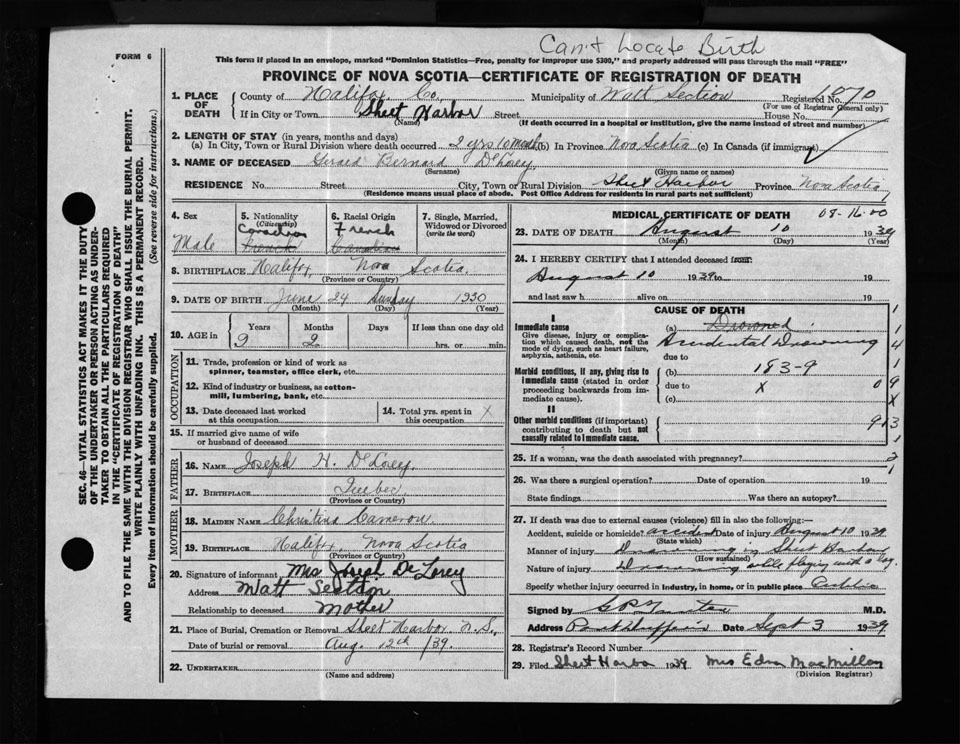 Can't Locate Birth
FORM 6
This form if placed in an envelope, marked "Dominion Statistics—Free, penalty for improper use $300," and properly addressed will pass through the mail "FREE"
PROVINCE OF NOVA SCOTIA—CERTIFICATE OF REGISTRATION OF DEATH
1. PLACE OF DEATH County of Halifax Co. Municipality of Watt Section Registered No. 1970
(For use of Registrar General only)
If in City or Town Sheet Harbor Street House No.
(Name) (If death occurred in a hospital or institution, give the name instead of street and number)
2. LENGTH OF STAY (in years, months and days)
(a) In City, Town or Rural Division where death occurred 2 yrs (b) In Province Nova Scotia (c) In Canada (if immigrant)
3. NAME OF DECEASED Gerald Bernard DeLorey
(Surname) (Given name or names)
RESIDENCE No. Street City, Town or Rural Division Sheet Harbor Province Nova Scotia
(Residence means usual place of abode. Post Office Address for residents in rural parts not sufficient)
4. Sex Male
5. Nationality (Citizenship) Canadian French
6. Racial Origin French Canadian
7. Single, Married, Widowed or Divorced (write the word)
8. BIRTHPLACE Halifax, Nova Scotia
(Province or Country)
9. DATE OF BIRTH June 24 Sunday 1930
(Month) (Day) (Year)
10. AGE in Years 9 Months 2 Days If less than one day old hrs. or min.
OCCUPATION
11. Trade, profession or kind of work as spinner, teamster, office clerk, etc.
12. Kind of industry or business, as cotton-mill, lumbering, bank, etc.
13. Date deceased last worked at this occupation
14. Total yrs. spent in this occupation X
15. If married give name of wife or husband of deceased
FATHER
16. NAME Joseph H. DeLorey
17. BIRTHPLACE Quebec
(Province or Country)
MOTHER
18. MAIDEN NAME Christina Cameron
19. BIRTHPLACE Halifax, Nova Scotia
(Province or Country)
20. Signature of informant Mrs Joseph DeLorey
Address Watt Section
Relationship to deceased Mother
21. Place of Burial, Cremation or Removal Sheet Harbor N.S.
Date of burial or removal Aug. 12th /39.
22. UNDERTAKER
(Name and address)
MEDICAL CERTIFICATE OF DEATH 08-16-00
23. DATE OF DEATH August 10 1939
(Month) (Day) (Year)
24. I HEREBY CERTIFY that I attended deceased from:
August 10 1939 to 19
and last saw h alive on 19
CAUSE OF DEATH
I
Immediate cause
Give disease, injury or complication which caused death, not the mode of dying, such as heart failure, asphyxia, asthenia, etc.
(a) Drowned
Accidental Drowning
due to
Morbid conditions, if any, giving rise to immediate cause (stated in order proceeding backwards from immediate cause).
(b) 183-9
due to X
(c)
II
Other morbid conditions (if important) contributing to death but not causally related to immediate cause.
25. If a woman, was the death associated with pregnancy?
26. Was there a surgical operation? Date of operation 19
State findings Was there an autopsy?
27. If death was due to external causes (violence) fill in also the following:—
Accident, suicide or homicide? accident Date of injury August 10 1939
(State which)
Manner of injury Drowning in Sheet Harbor
(How sustained)
Nature of injury Drowning while playing with a log.
Specify whether injury occurred in industry, in home, or in public place Public
Signed by M.D.
Address Date Sept 3 1939
28. Registrar's Record Number
29. Filed Sheet Harbor 1939 Mrs Edna MacMillan
(Division Registrar)
SEC. 46—VITAL STATISTICS ACT MAKES IT THE DUTY OF THE UNDERTAKER OR PERSON ACTING AS UNDERTAKER TO OBTAIN ALL THE PARTICULARS REQUIRED IN THE "CERTIFICATE OF REGISTRATION OF DEATH" AND TO FILE THE SAME WITH THE DIVISION REGISTRAR WHO SHALL ISSUE THE BURIAL PERMIT.
WRITE PLAINLY WITH UNFADING INK. THIS IS A PERMANENT RECORD.
Every item of information should be carefully supplied. (See reverse side for instructions.)